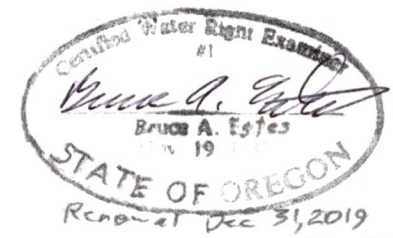 Certified Water Right Examiner
#1
Bruce A. Estes
Bruce A. Estes
19
STATE OF OREGON
Renewal Dec 31, 2019